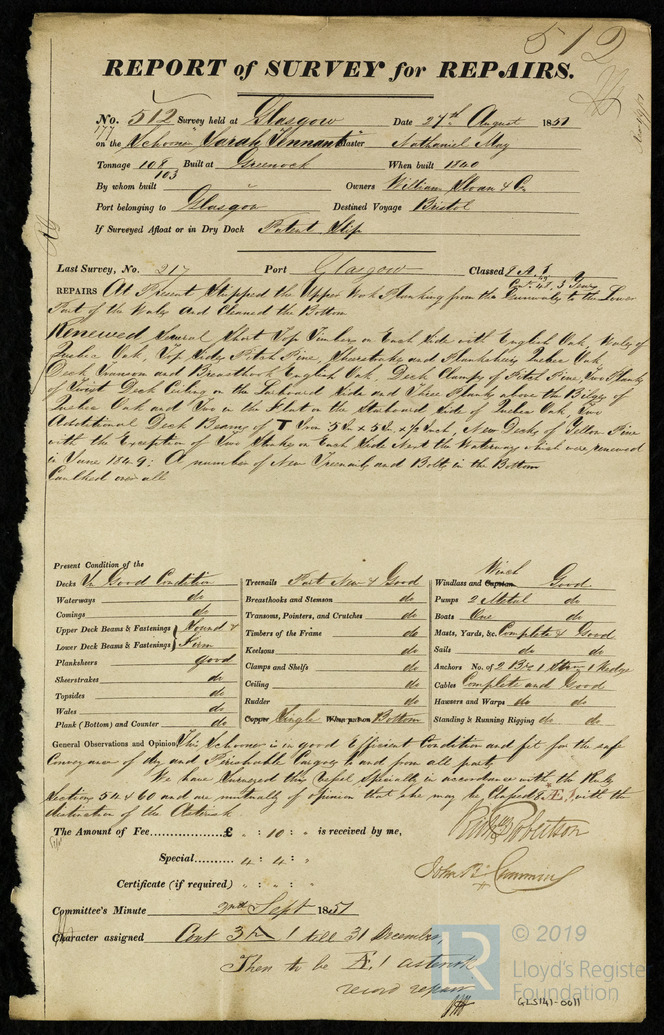 512
REPORT of SURVEY for REPAIRS.
No. 512 Survey held at Glasgow Date 27th August 1851
on the Schooner "Sarah Tennant" Master Nathaniel May
Tonnage 108 Built at Greenock When built 1840
103
By whom built " Owners William Sloan & Co
Port belonging to Glasgow Destined Voyage Bristol
If Surveyed Afloat or in Dry Dock Patent Slip
Last Survey, No. 217 Port Glasgow Classed
Cont. 48, 3 Years
REPAIRS At Present Stripped the Upper Work Planking from the Gunwale to the Lower
Part of the Wales and Cleaned the Bottom
Renewed Several Short Top Timbers on Each Side with English Oak, Wales of
Quebec Oak, Top Sides Pitch Pine, Sheerstrakes and Planksheers Quebec Oak
Deck Transom and Breasthook English Oak, Deck Clamps of Pitch Pine, Two Planks
of Twixt Deck Ceiling on the Larboard Side and Three Planks above the Bilges of
Quebec Oak and Two in the Flat on the Starboard Side of Quebec Oak, Two
Additional Deck Beams of T Iron 5 In x 5 In x 1/2 Inch, New Decks of Yellow Pine
with the Exception of Two Strakes on Each Side Next the Waterway which were renewed
in June 1849: A number of New Treenails and Bolts in the Bottom
Caulked over all
Present Condition of the
Decks In Good Condition
Waterways do
Comings do
Upper Deck Beams & Fastenings } Sound &
Lower Deck Beams & Fastenings } Firm
Planksheers good
Sheerstrakes do
Topsides do
Wales do
Plank (Bottom) and Counter do
Treenails Part New & Good
Breasthooks and Stemson do
Transoms, Pointers, and Crutches do
Timbers of the Frame do
Keelsons do
Clamps and Shelfs do
Ceiling do
Rudder do
Copper Single When put on Bottom
Winch
Windlass and Capstan Good.
Pumps 2 Metal do
Boats One do
Masts, Yards, &c. Complete & Good
Sails do do
Anchors No. of 2 Br 1 Stream 1 Kedge
Cables Complete and Good
Hawsers and Warps do do
Standing & Running Rigging do do
General Observations and Opinion, This Schooner is in good Efficient Condition and fit for the safe
Conveyance of dry and Perishable Cargoes to and from all parts
We have Surveyed this Vessel Specially in accordance with the Rules
Sections 54 & 60 and are mutually of opinion that she may be Classed Æ 1 with the
distinction of the Asterisk
The Amount of Fee......£ " : 10 : " is received by me,
Richd Robertson
Special.......... 4 : 4 : "
John Cumming
Certificate (if required) " : " : "
Committee's Minute 2nd Sept 1851
Character assigned Cont 3 1 till 31 December,
Then to be Æ 1 asterisk
record repairs
© 2019
LR
Lloyd's Register
Foundation
GLS141-0011